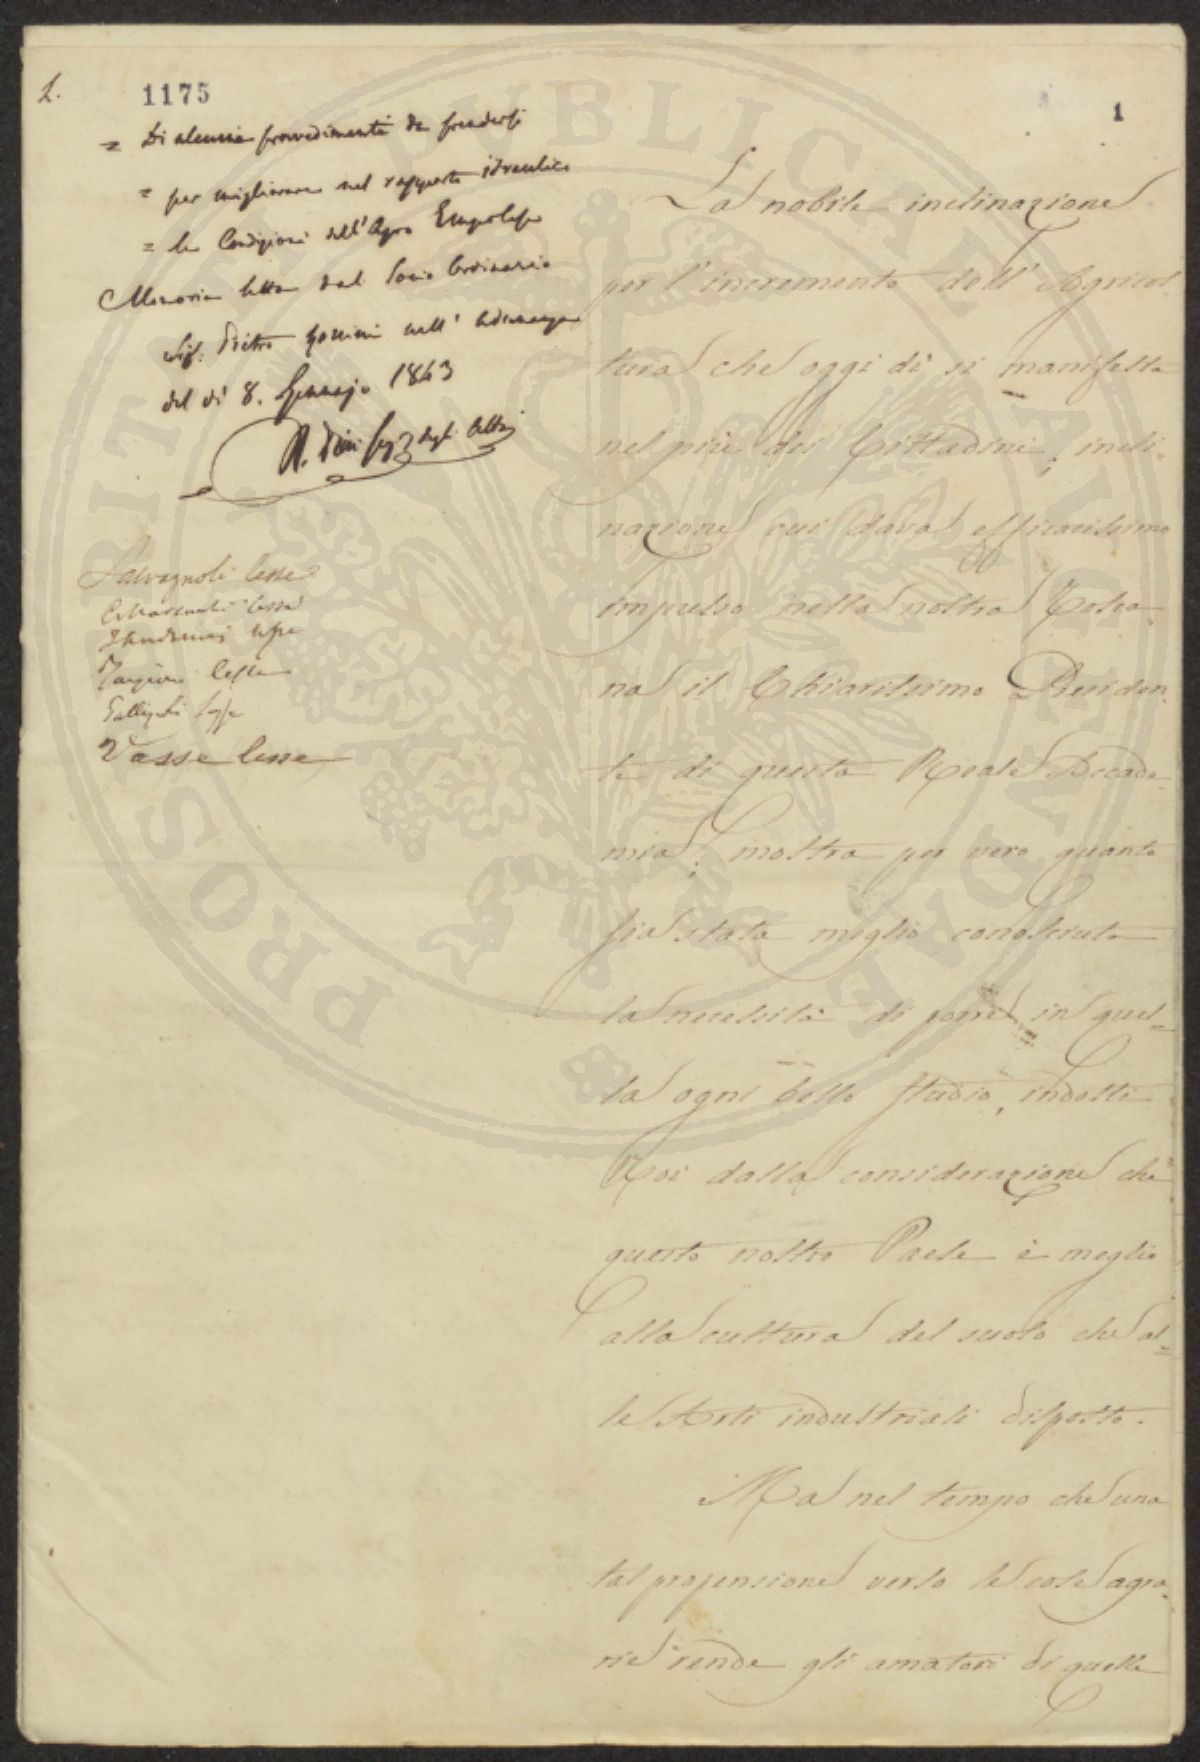 1.
1175
1
= Di alcuni provvedimenti da prendersi
= per migliorare nel rapporto idraulico
= le Condizioni dell'Agro Empolese
Memoria letta dal Socio Ordinario
Sig. Pietro nell'Adunanza
del dì 8. Gennajo 1843
degli Atti
Salvagnoli lesse
lesse
lesse
Targioni lesse
lesse
Vasse lesse
La nobile inclinazione
per l'incremento dell'Agricol-
tura che oggi dì si manifesta
nel più dei Cittadini, incli-
nazione cui dava efficacissimo
impulso nella nostra Tosca-
na il Chiarissimo Presiden-
te di questa Reale Accade-
mia; mostra per vero quanto
sia stata meglio conosciuta
la necessità di porre in quel-
la ogni bello studio, indotti
Noi dalla considerazione che
questo nostro Paese è meglio
alla cultura del suolo che al-
le Arti industriali disposto.
Ma nel tempo che una
tal propensione verso le cose agra-
rie rende gli amatori di quelle
PROSPERITATI PUBLICAE AUGENDAE